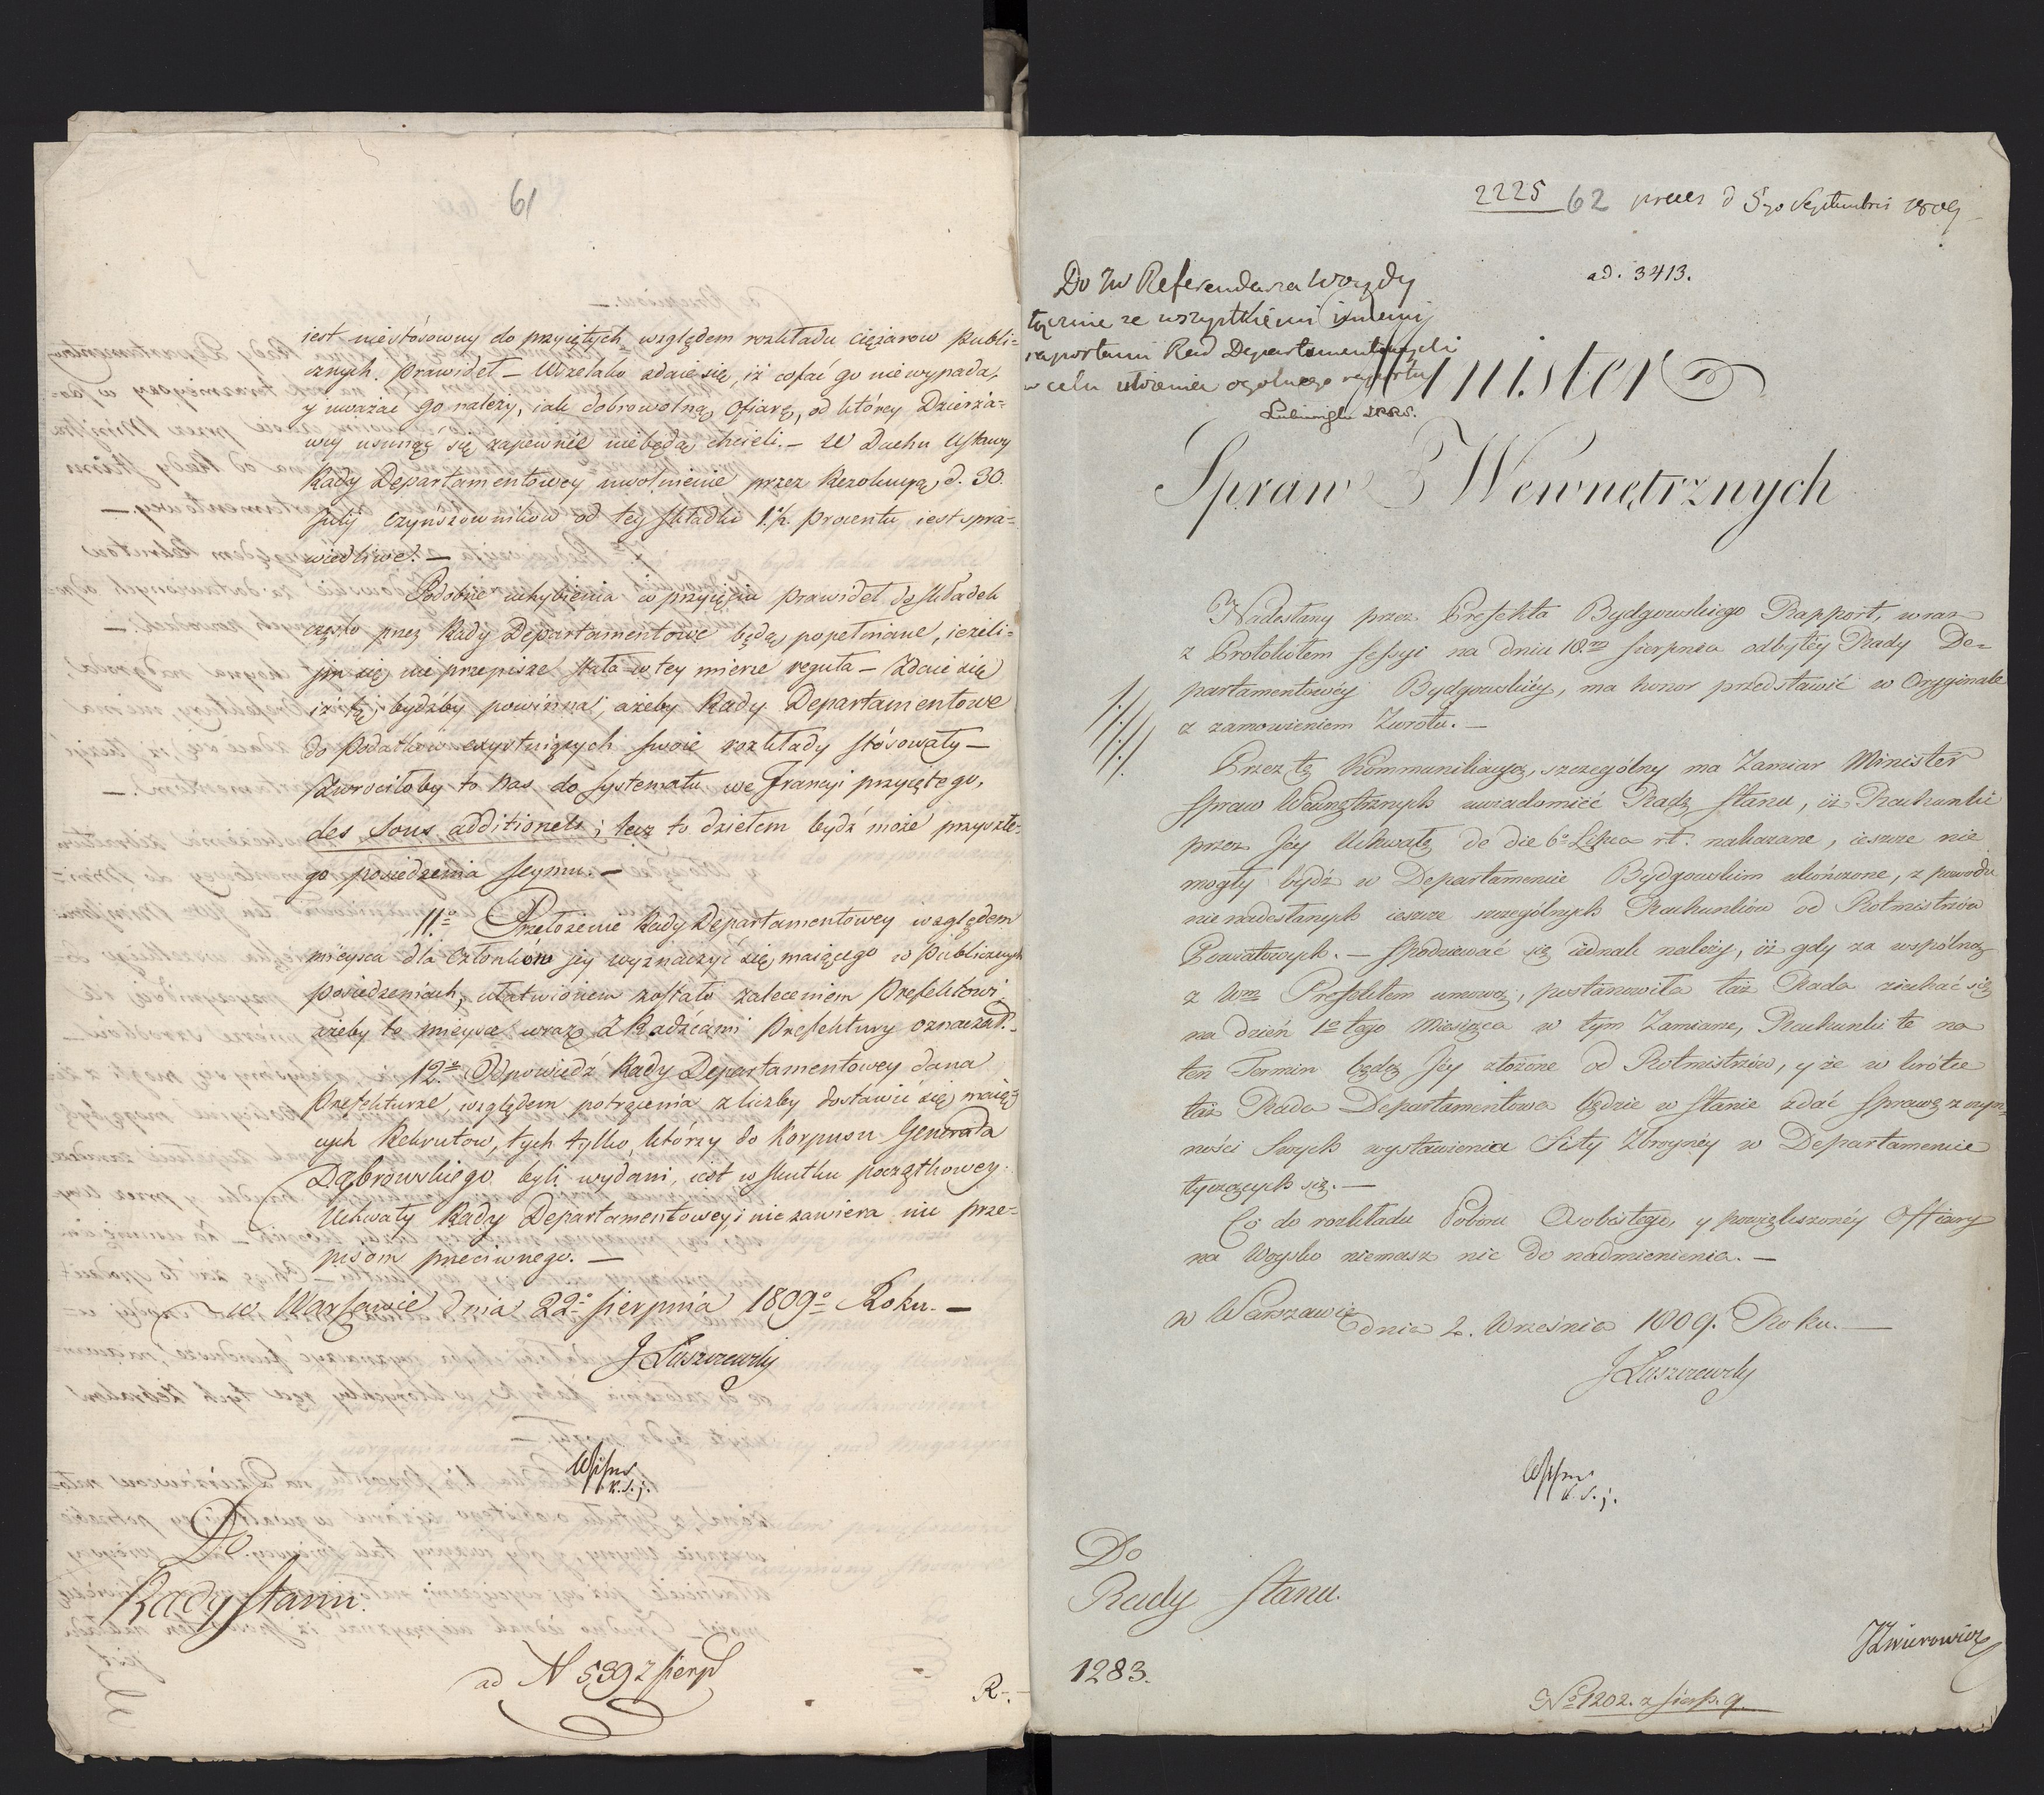 61
iest niestósowny do przyiętych względem rozkładu ciężarow publi=
cznych prawideł – Wszelako zdaie się, iż cofać go nie wypada,
y uważać go należy, iak dobrowolną ofiarę, od którey Dzierża=
wcy usunąć się zapewne niebędą chcieli. – W Duchu Ustawy
Rady Departamentowey uwolnienie przez Rezolucyą d. 30.
Julij czynszowników od tey składki 1½ procentu iest spra=
wiedliwe. –
Podobne uchybienia w przyięciu prawideł do składek
często przez Rady Departamentowe będą popełniane, ieżeli=
im się nie przepisze stała w tey mierze reguła – Zdaie się
iż tą bydźby powinna, ażeby Rady Departamentowe
do podatków exystuiących swoie rozkłady stósowały –
Zwrociłoby to nas do systematu we Francyi przyiętego,
des Sous additionels; lecz to dziełem bydź może przyszłe=
go posiedzenia Seymu. –
11.o Przełożenie Rady Departamentowey względem
mieysca dla Członków jey wyznaczyć się maiącego w publicznych
posiedzeniach, ułatwionem zostało zaleceniem Prefektowi
ażeby to mieysce wraz z Radzcami Prefektury oznaczał. –
12.o Odpowiedź Rady Departamentowey dana
Prefekturze względem potrącenia z liczby dostawić się maią=
cych Rekrutow, tych tylko, którzy do Korpusu Generała
Dąbrowskiego byli wydani, iest w skutku początkowey
Uchwały Rady Departamentowey i nie zawiera nic prze=
pisom przeciwnego. –
w Warszawie dnia 22.o Sierpnia 1809.o Roku. –
J Łuszczewski
K. S. j.
Do
Rady Stanu.
ad N 539 z Sierp
R–.
2225 62 praes d 5go Septembris 1809
ad. 3413.
Do JW Referendarza Woydy
łącznie ze wszystkiemi innemi
raportami Rad Departamentowych
w celu utworzenia ogolnego raportu
Minister
Spraw Wewnętrznych
Nadesłany przez Prefekta Bydgowskiego Rapport, wraz
z Protokułem Sessyi na dniu 18go Sierpnia odbytéy Rady De=
partamentowéy Bydgowskiéy, ma honor przedstawić w Oryginale
z zamowieniem Zwrotu. –
Przez tę Kommunikacyą, szczególny ma Zamiar Minister
Spraw Wewnętrznych uwiadomić Radę Stanu, iż Rachunki
przez Jéy Uchwałę de die 6o Lipca r.t. nakazane, ieszcze nie
mogły bydź w Departamencie Bydgowskim ukończone, z powodu
nienadesłanych ieszcze szczególnych Rachunków od Rotmistrzów
Powiatowych. – Spodziewać się iednak należy, iż gdy za wspólną
z Wm Prefektem umową, postanowiła taż Rada ziechać się
na dzień 1o tego Miesiąca w tym Zamiarze, Rachunki te na
ten Termin będą Jéy złożone od Rotmistrzów, y że w krótce
taż Rada Departamentowa będzie w stanie zdać Sprawę z czyn=
ności Swych wystawienia Siły Zbroynéy w Departamencie
tyczących się. –
Co do rozkładu Poboru Osobistego, y powiększonéy Offiary
na Woysko niemasz nic do nadmienienia. –
w Warszawie dnia 2. Września 1809. Roku. –
J Łuszczewski
K. S. j.
Do
Rady Stanu.
1283.
No 1202. z Sierp. 9.